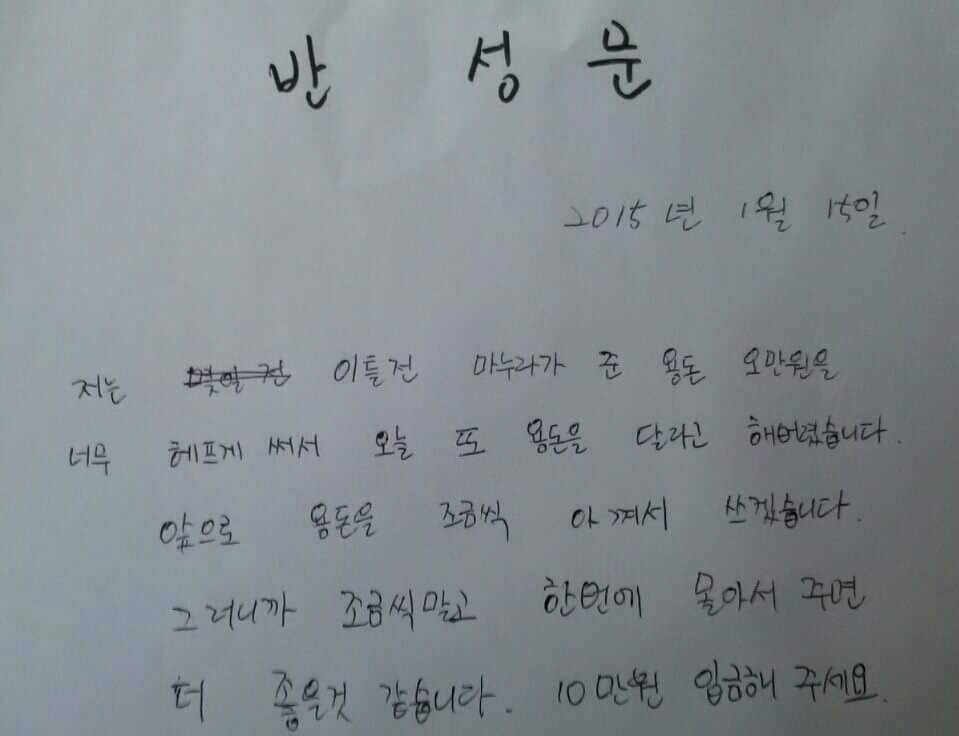 반 성 문
2015년 1월 15일.
저는 몇일전 이틀전 마누라가 준 용돈 오만원을
너무 헤프게 써서 오늘 또 용돈을 달라고 해버렸습니다.
앞으로 용돈을 조금씩 아껴서 쓰겠습니다.
그러니까 조금씩말고 한번에 몰아서 주면
더 좋을것 같습니다. 10만원 입금해 주세요.